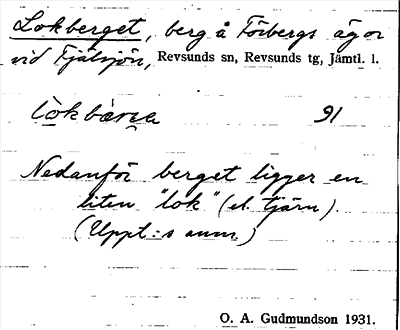 Lokberget, berg å Förbergs ägor
vid Fjälsjön, Revsunds sn, Revsunds tg, Jämtl. l.
91
Nedanför berget ligger en
liten "lok" (el. tjärn).
(Uppt:s anm.)
O. A. Gudmundson 1931.